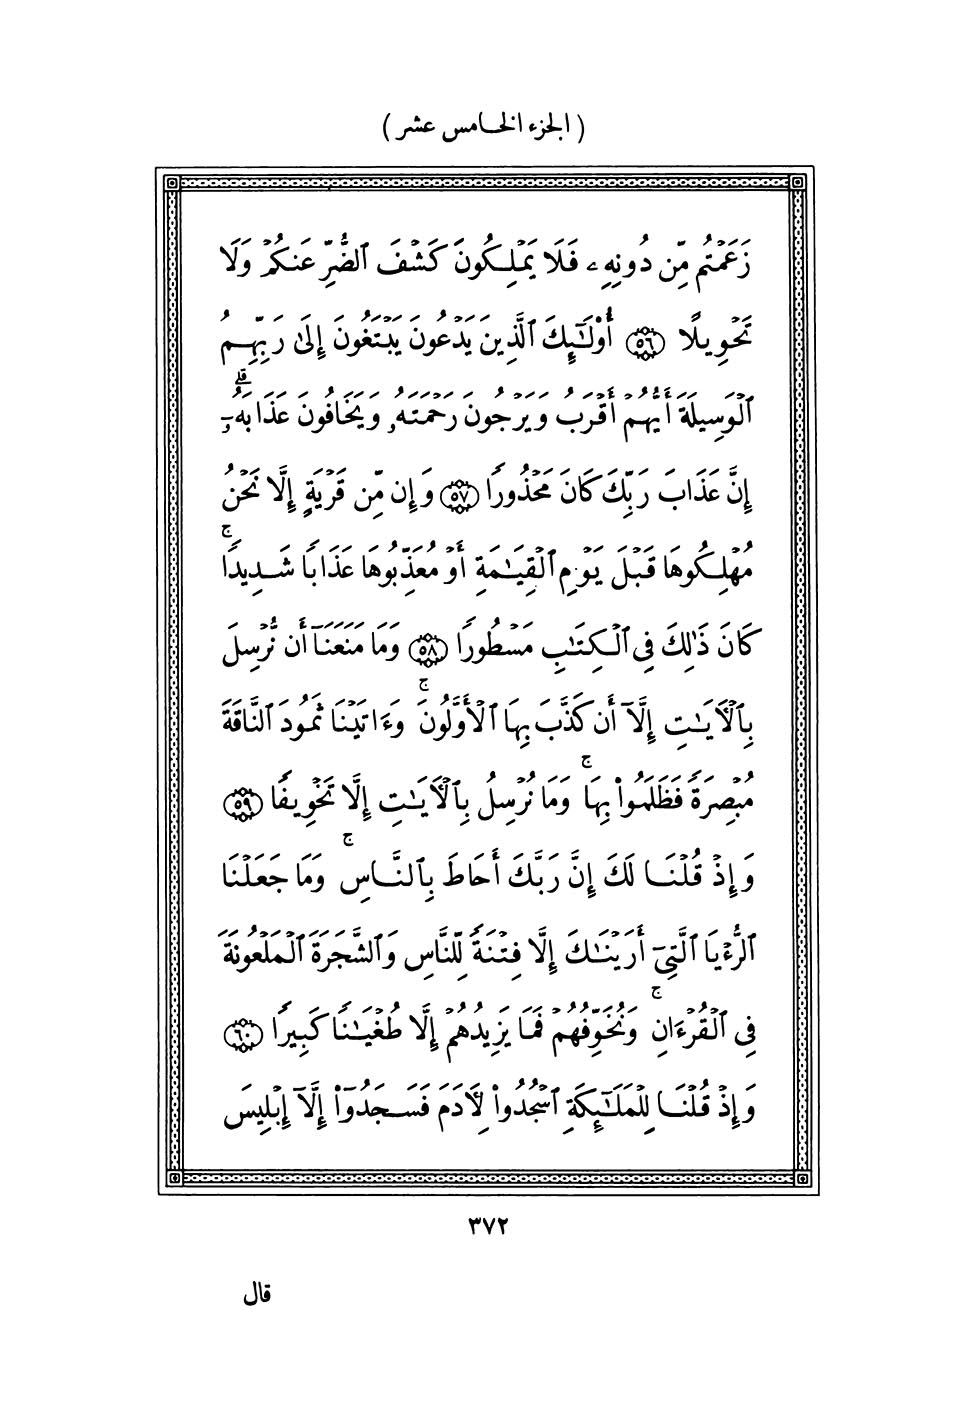 ( الجزء الخامس عشر )
زَعَمْتُم مِّن دُونِهِۦ فَلَا يَمْلِكُونَ كَشْفَ ٱلضُّرِّ عَنكُمْ وَلَا
تَحْوِيلًا ۝٥٦ أُو۟لَـٰٓئِكَ ٱلَّذِينَ يَدْعُونَ يَبْتَغُونَ إِلَىٰ رَبِّهِمُ
ٱلْوَسِيلَةَ أَيُّهُمْ أَقْرَبُ وَيَرْجُونَ رَحْمَتَهُۥ وَيَخَافُونَ عَذَابَهُۥٓ ۗ
إِنَّ عَذَابَ رَبِّكَ كَانَ مَحْذُورًا ۝٥٧ وَإِن مِّن قَرْيَةٍ إِلَّا نَحْنُ
مُهْلِكُوهَا قَبْلَ يَوْمِ ٱلْقِيَـٰمَةِ أَوْ مُعَذِّبُوهَا عَذَابًا شَدِيدًا ۚ
كَانَ ذَٰلِكَ فِى ٱلْكِتَـٰبِ مَسْطُورًا ۝٥٨ وَمَا مَنَعَنَآ أَن نُّرْسِلَ
بِٱلْـَٔايَـٰتِ إِلَّآ أَن كَذَّبَ بِهَا ٱلْأَوَّلُونَ ۚ وَءَاتَيْنَا ثَمُودَ ٱلنَّاقَةَ
مُبْصِرَةً فَظَلَمُوا۟ بِهَا ۚ وَمَا نُرْسِلُ بِٱلْـَٔايَـٰتِ إِلَّا تَخْوِيفًا ۝٥٩
وَإِذْ قُلْنَا لَكَ إِنَّ رَبَّكَ أَحَاطَ بِٱلنَّاسِ ۚ وَمَا جَعَلْنَا
ٱلرُّءْيَا ٱلَّتِىٓ أَرَيْنَـٰكَ إِلَّا فِتْنَةً لِّلنَّاسِ وَٱلشَّجَرَةَ ٱلْمَلْعُونَةَ
فِى ٱلْقُرْءَانِ ۚ وَنُخَوِّفُهُمْ فَمَا يَزِيدُهُمْ إِلَّا طُغْيَـٰنًا كَبِيرًا ۝٦٠
وَإِذْ قُلْنَا لِلْمَلَـٰٓئِكَةِ ٱسْجُدُوا۟ لِـَٔادَمَ فَسَجَدُوٓا۟ إِلَّآ إِبْلِيسَ
٣٧٢
قال